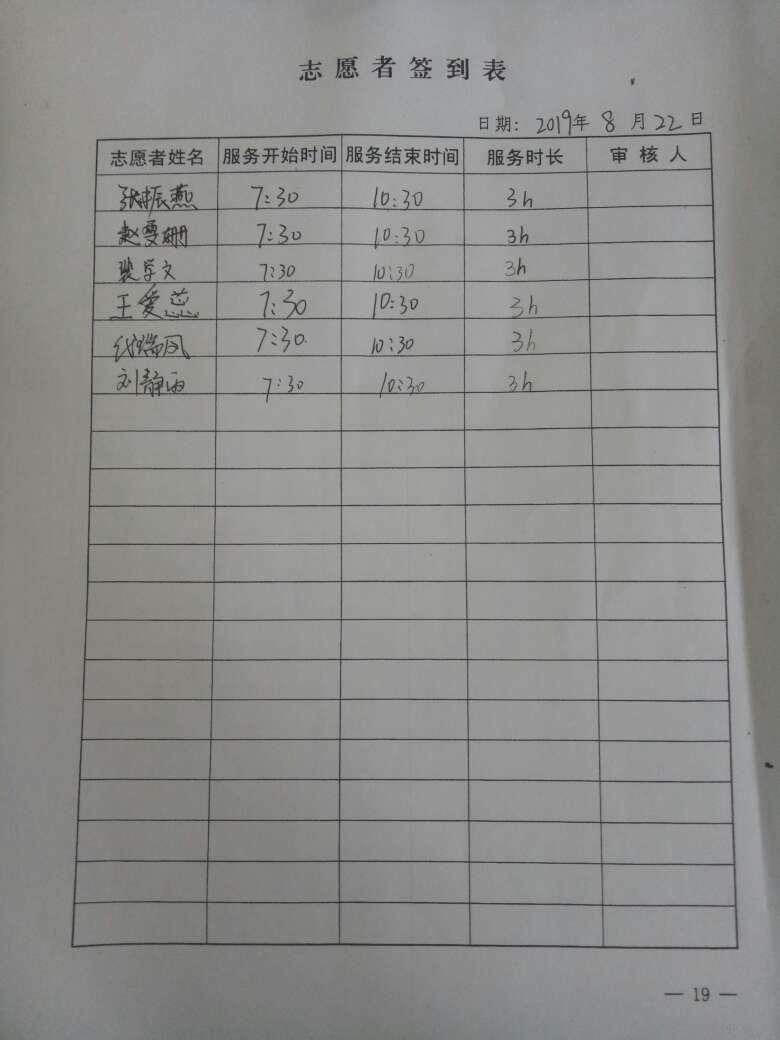 志愿者签到表
日期: 2019年 8 月 22 日
志愿者姓名 服务开始时间 服务结束时间 服务时长 审核人
张振燕 7:30 10:30 3h
赵雯珊 7:30 10:30 3h
裴学文 7:30 10:30 3h
王爱蕊 7:30 10:30 3h
瑞凤 7:30 10:30 3h
刘静雨 7:30 10:30 3h
— 19 —